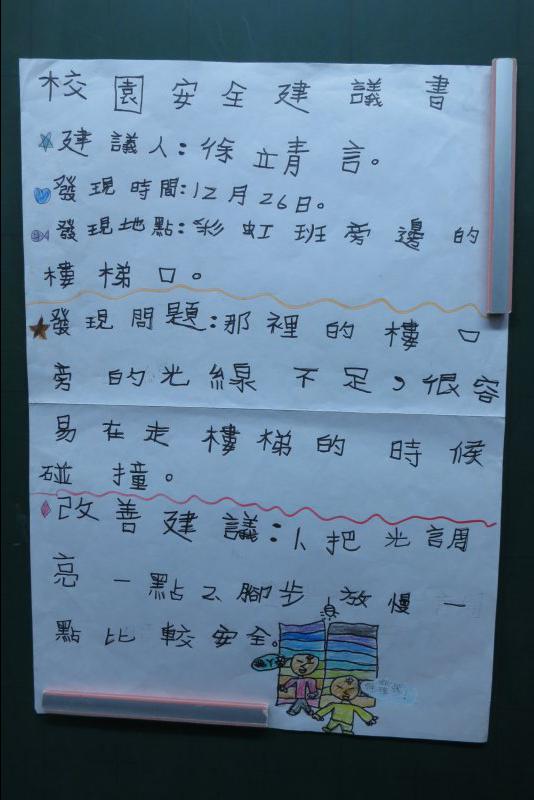 校園安全建議書
建議人:徐立青言。
發現時間:12月26日。
發現地點:彩虹班旁邊的
樓梯口。
發現問題:那裡的樓口
旁的光線不足,很容
易在走樓梯的時候
碰撞。
改善建議:1、把光調
亮一點2、腳步放慢一
點比較安全。